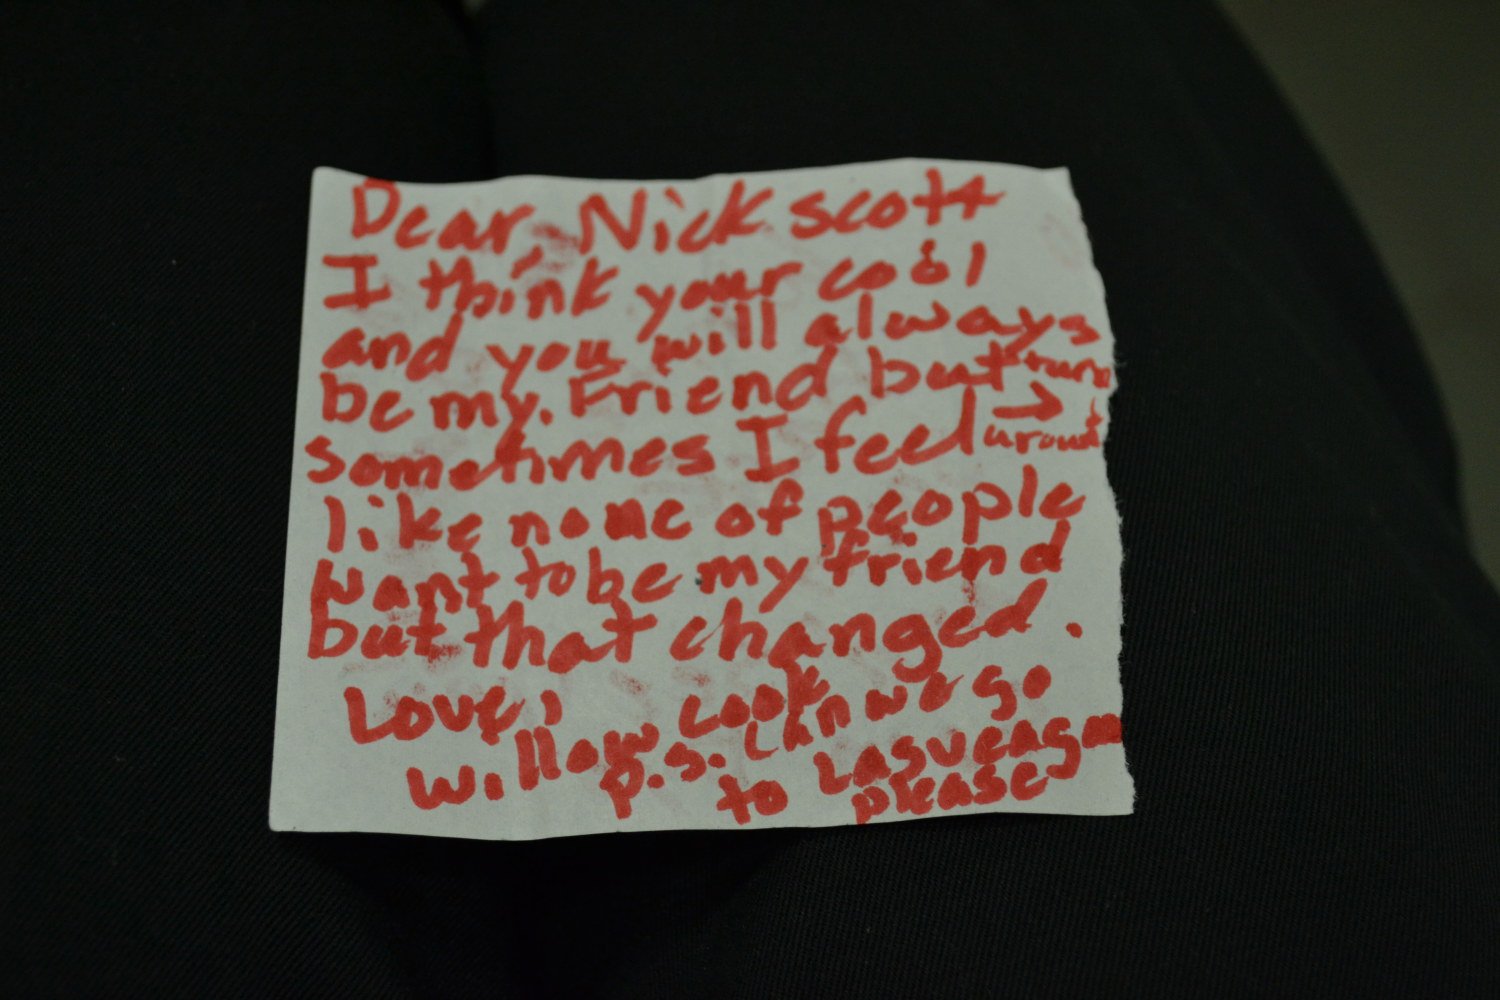 Dear, Nick scott
I think your cool
and you will always
be my. Friend but turn
sometimes I feel → around
like none of people
want to be my friend
but that changed.
Love,
Willow Cook
p.s. Can we go
to Lasveagas
please